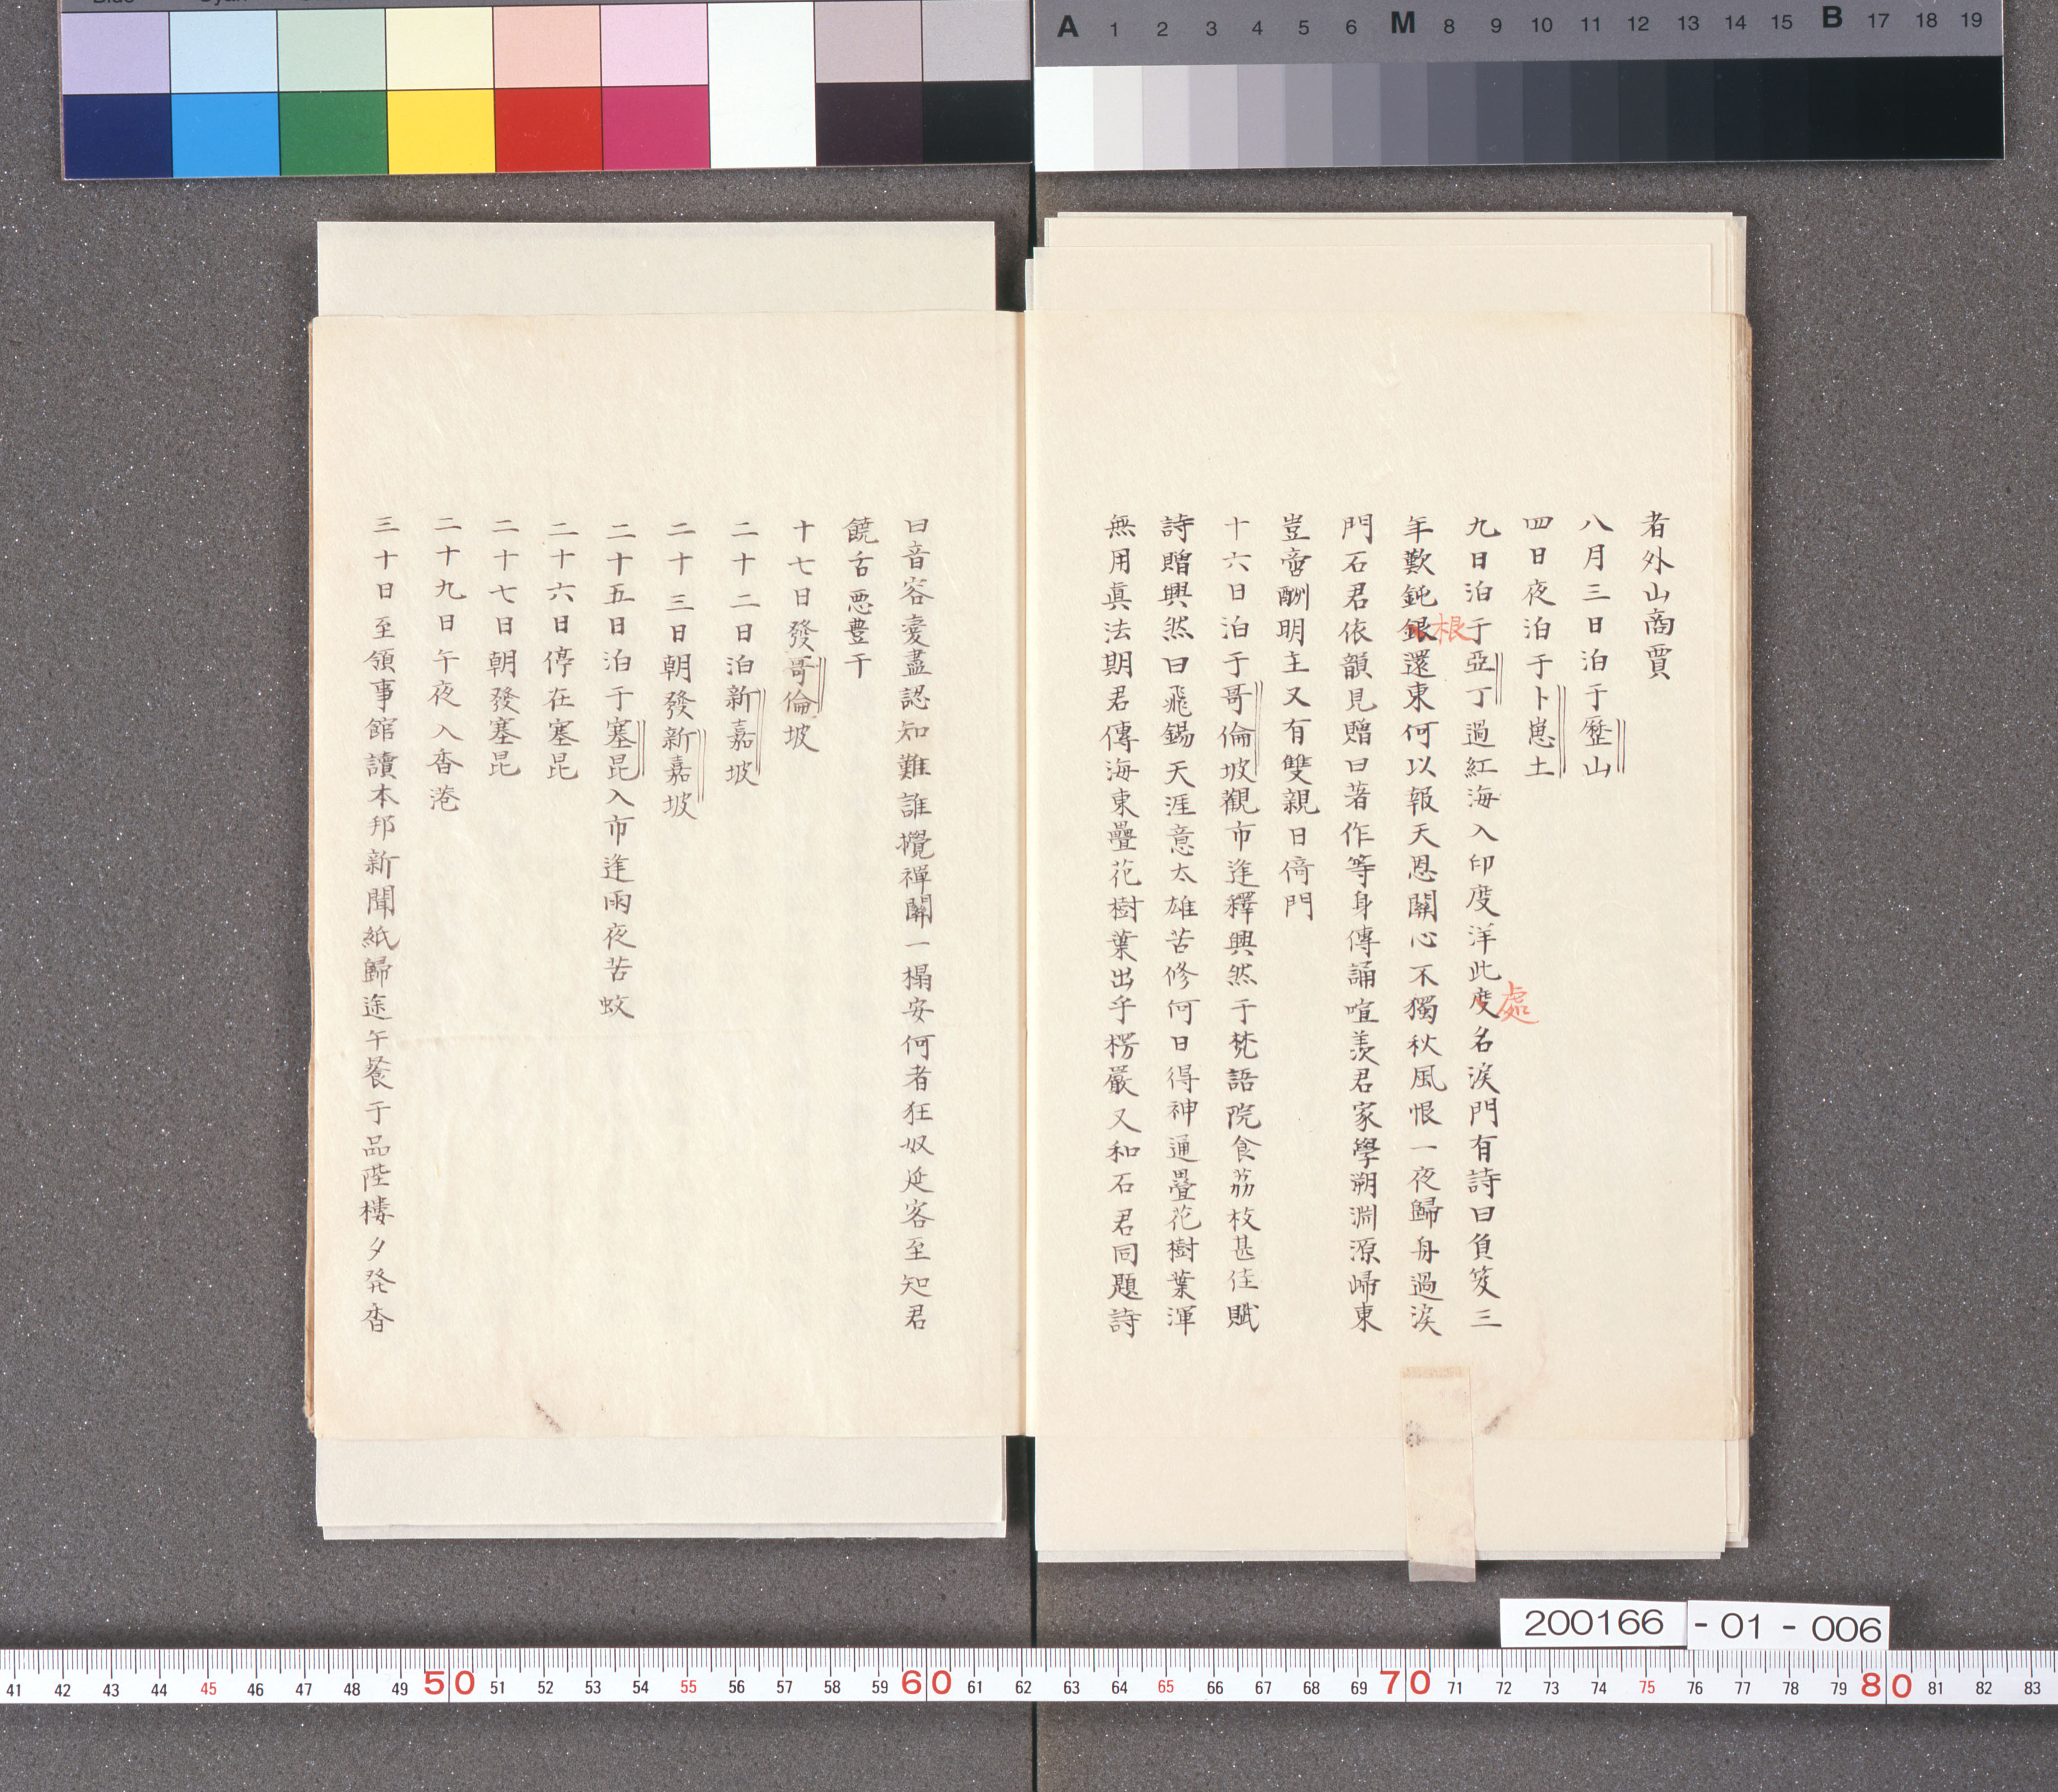 A 1 2 3 4 5 6 M 8 9 10 11 12 13 14 15 B 17 18 19
者外山商賈
八月三日泊于歷山
四日夜泊于卜崽土
九日泊于亞丁過紅海入印度洋此度名淚門有詩曰負笈三
處
年歎鈍銀還東何以報天恩關心不獨秋風恨一夜歸舟過淚
根
門石君依韻見贈曰著作等身傳誦喧羨君家學朔淵源歸東
豈啻酬明主又有雙親日倚門
十六日泊于哥倫坡觀市逢釋興然于梵語院食荔枝甚佳賦
詩贈興然曰飛錫天涯意太雄苦修何日得神通疊花樹葉渾
無用眞法期君傳海東疊花樹葉出乎楞嚴又和石君同題詩
曰音容憂盡認知難誰攪禪關一榻安何者狂奴延客至知君
饒舌悪豊干
十七日發哥倫坡
二十二日泊新嘉坡
二十三日朝發新嘉坡
二十五日泊于塞昆入市逢雨夜苦蚊
二十六日停在塞昆
二十七日朝發塞昆
二十九日午夜入香港
三十日至領事館讀本邦新聞紙歸途午餐于品陞樓夕発香
200166 - 01 - 006
41 42 43 44 45 46 47 48 49 50 51 52 53 54 55 56 57 58 59 60 61 62 63 64 65 66 67 68 69 70 71 72 73 74 75 76 77 78 79 80 81 82 83